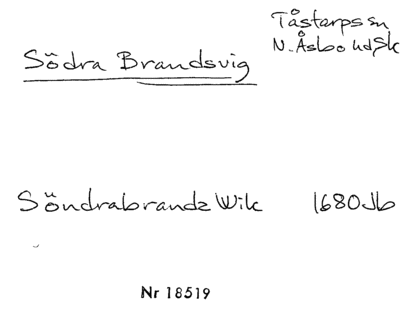 Tåstarps sn
N. Åsbo hd, Sk
Södra Brandsvig
Söndrabrandz Wik 1680 Jb
Nr 18519